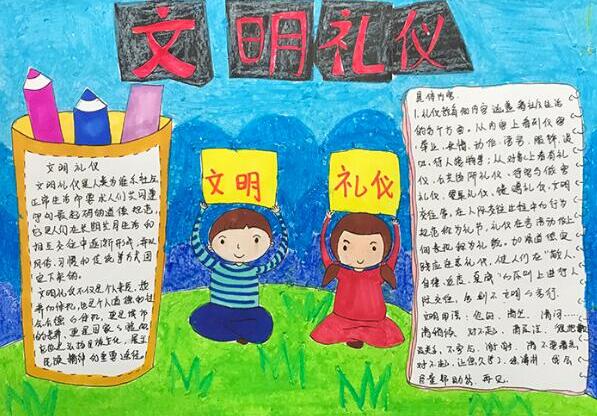 文明礼仪
文明
礼仪
文明礼仪
文明礼仪是人类为维系社会
正常生活而要求人们共同遵
守的最起码的道德规范，
它是人们在长期共同生活和
相互交往中逐渐形成，并以
风俗、习惯和传统等方式固
定下来的。
文明礼仪不仅是个人素质、教
养的体现，也是个人道德和社
会公德的体现，更是城市
的脸面，更是国家的脸面
民族精神的重要途径。
具体内容
1.礼仪教育的内容涵盖着社会生活
的各个方面。从内容上看有仪容
举止、表情、服饰、谈
吐、待人接物等；从对象上看有个人礼
仪、公共场所礼仪、待客与做客
礼仪、餐桌礼仪、馈赠礼仪、文明
交往等。在人际交往过程中的行为
规范称为礼节，礼仪在言语动作上
的表现称为礼貌。加强道德实
践应注意礼仪，使人们在“敬人、
自律、适度、真诚”的原则上进行人
际交往，告别不文明的言行。
文明用语：您好、请坐、请问
请稍候 对不起、请原谅、很抱歉
没关系、不客气、谢谢、请不要着急
再见